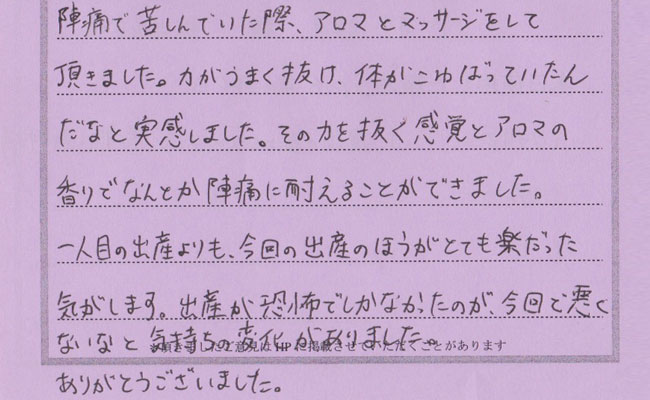 陣痛で苦しんでいた際、アロマとマッサージをして
頂きました。力がうまく抜け、体がこわばっていたん
だなと実感しました。その力を抜く感覚とアロマの
香りでなんとか陣痛に耐えることができました。
一人目の出産よりも、今回の出産のほうがとても楽だった
気がします。出産が恐怖でしかなかったのが、今回で悪く
ないなと気持ちの変化がありました。
※頂きましたご意見はHPに掲載させていただくことがあります
ありがとうございました。